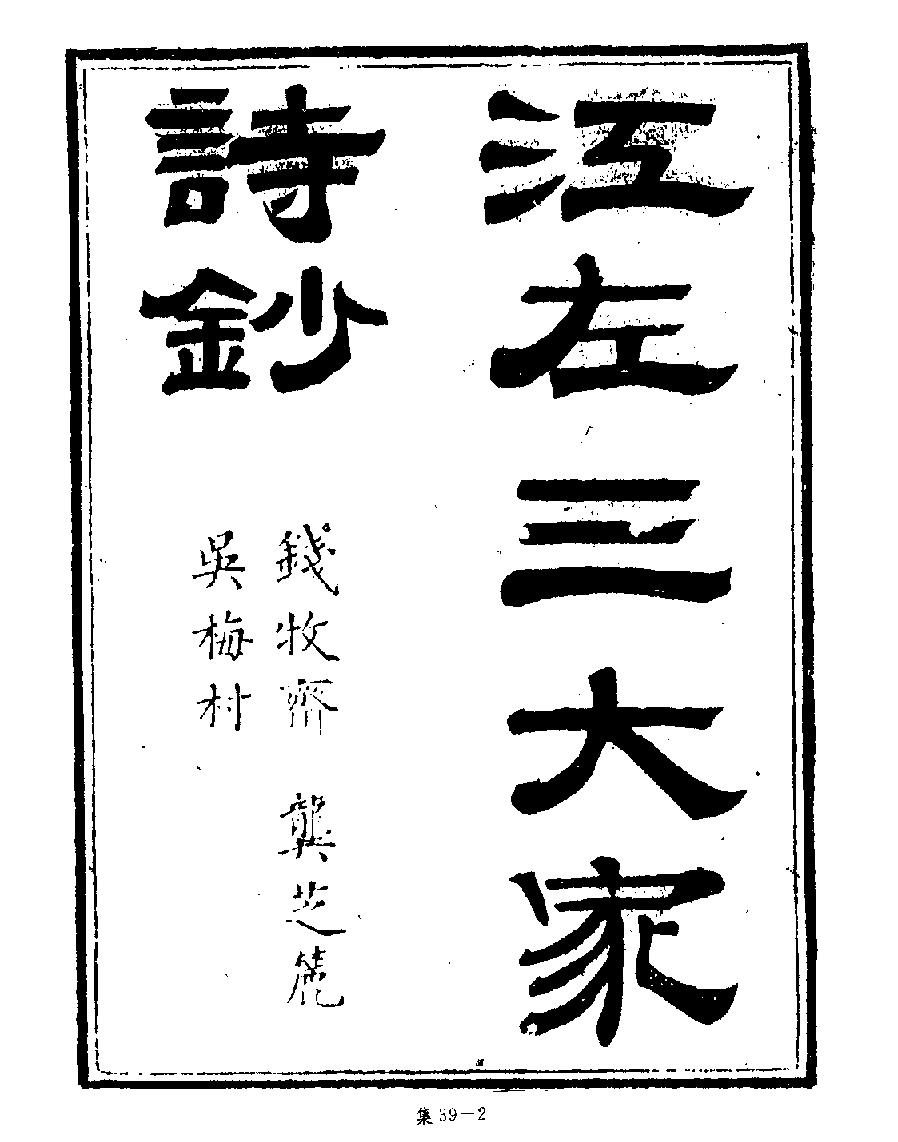 江左三大家
詩鈔
錢牧齋 龔芝麓
吳梅村
集39-2